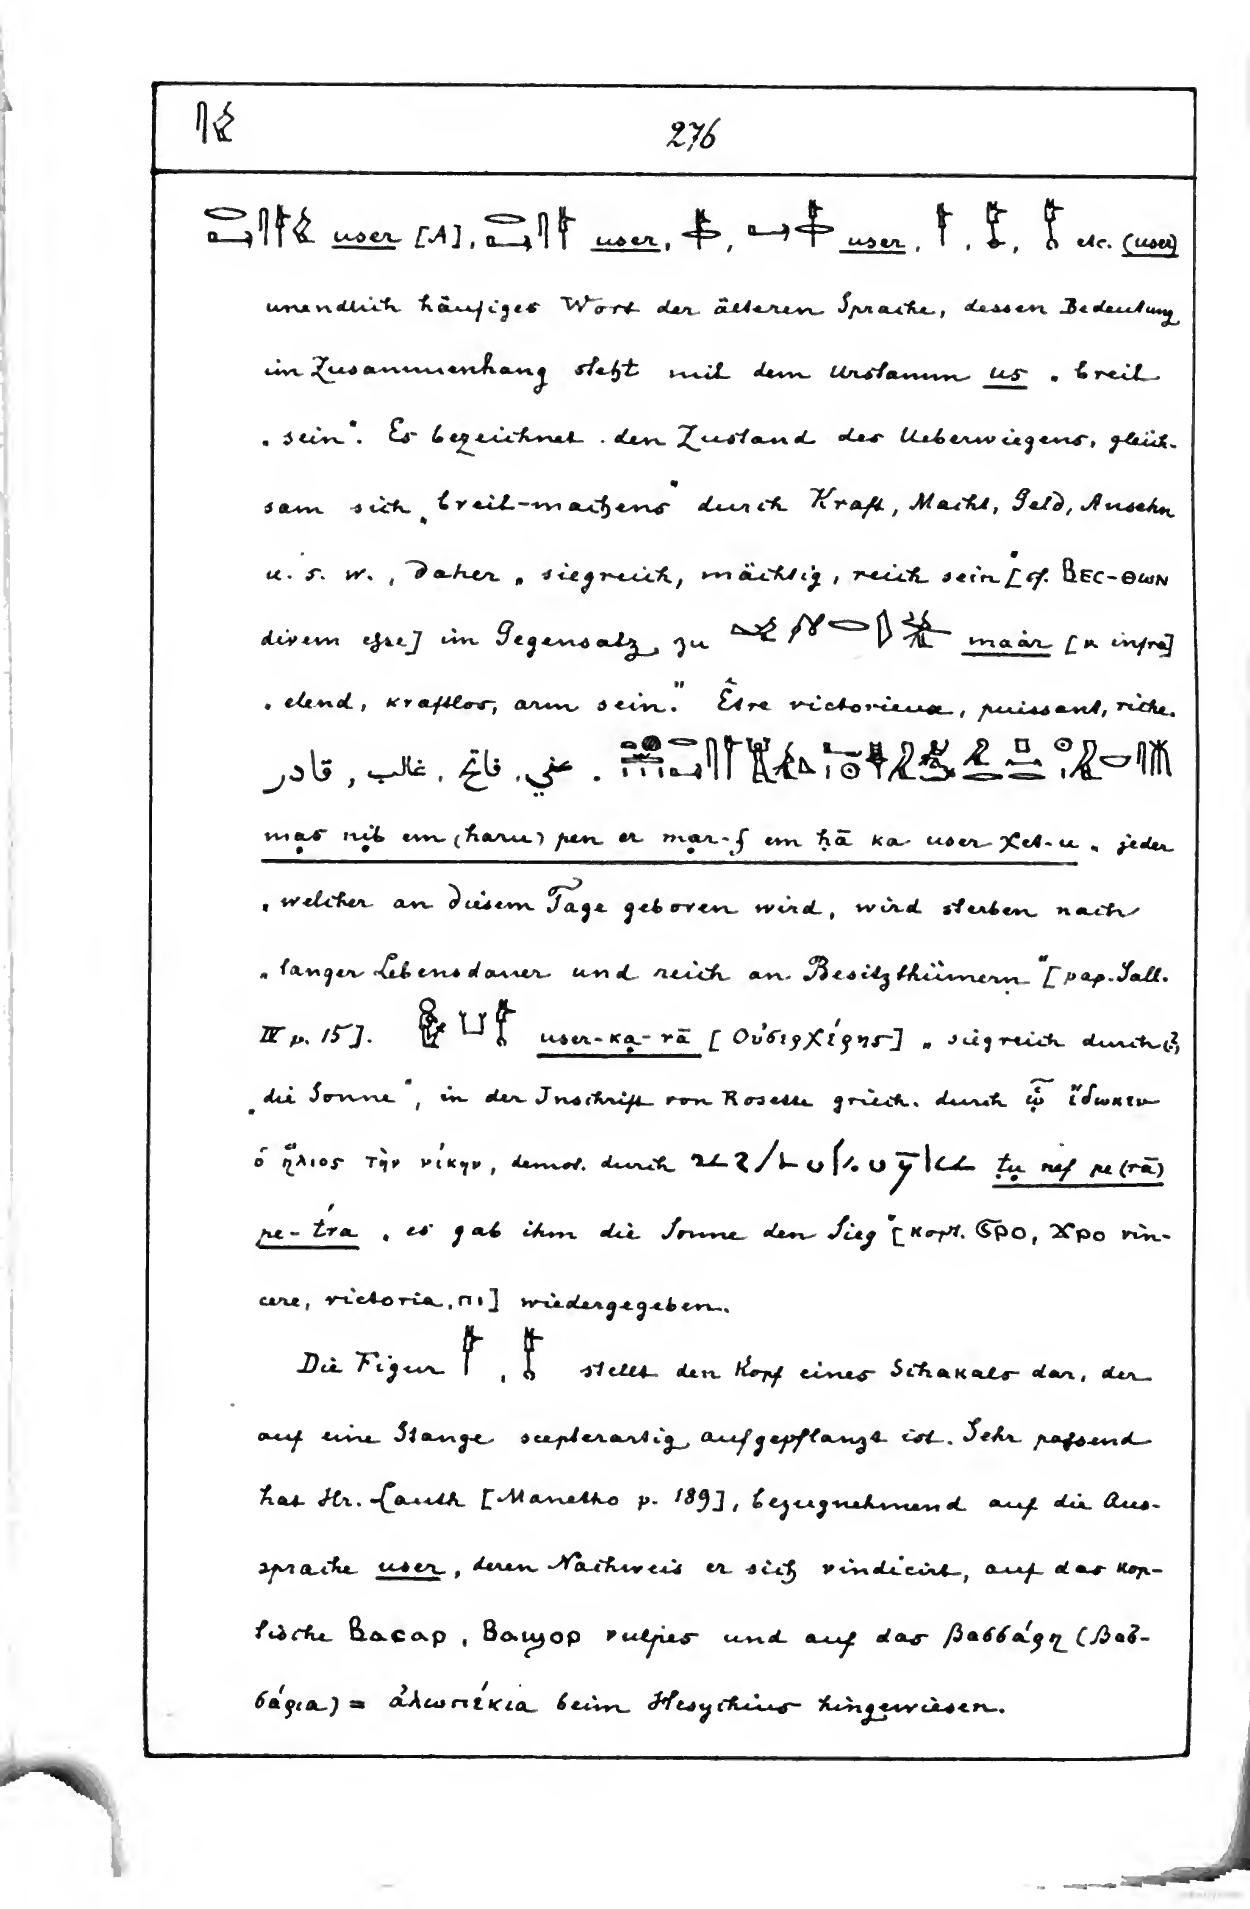 276
user [A], user, , user, , , etc. (user)
unendlich häufiges Wort der älteren Sprache, dessen Bedeutung
im Zusammenhang steht mit dem Urstamm us „breit
„sein“. Es bezeichnet den Zustand des Ueberwiegens, gleich-
sam sich „breit-machens“ durch Kraft, Macht, Geld, Ansehn
u. s. w., daher „siegreich, mächtig, reich sein“ [cf. ⲂⲈⲤ-ⲐⲰⲚ
divem esse] im Gegensatz zu maȧr [v. infra]
„elend, kraftlos, arm sein.“ Être victorieux, puissant, riche.
قادر, غالب, فاتح, غني.
mąs nib em (haru) pen er mąr-f em ḥā ka user χet-u „jeder
„welcher an diesem Tage geboren wird, wird sterben nach
„langer Lebensdauer und reich an Besitzthümern“ [pap. Sall.
IV p. 15]. user-ką-rā [Οὐσιρχέρης] „siegreich durch (?)
„die Sonne“, in der Inschrift von Rosette griech. durch ᾧ ἔδωκεν
ὁ ἥλιος τὴν νίκην, demot. durch ṭu nef pe (rā)
pe-t́ra „es gab ihm die Sonne den Sieg“ [kopt. ϭⲣⲟ, ϫⲣⲟ vin-
cere, victoria, ⲡⲓ] wiedergegeben.
Die Figur , stellt den Kopf eines Schakals dar, der
auf eine Stange scepterartig aufgepflanzt ist. Sehr passend
hat Hr. Lauth [Manetho p. 189], bezugnehmend auf die Aus-
sprache user, deren Nachweis er sich vindicirt, auf das kop-
tische Ⲃⲁⲥⲁⲣ, Ⲃⲁϣⲟⲣ vulpes und auf das βασσάρη (βασ-
σάρια) = ἀλωπέκια beim Hesychius hingewiesen.